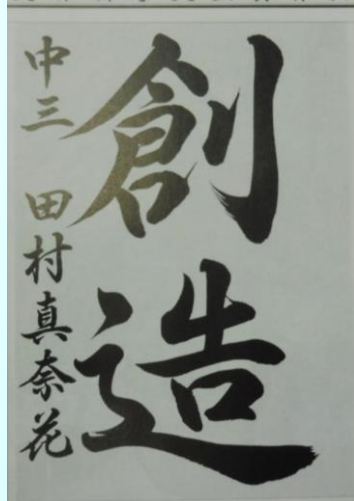 創造
中三 田村真奈花